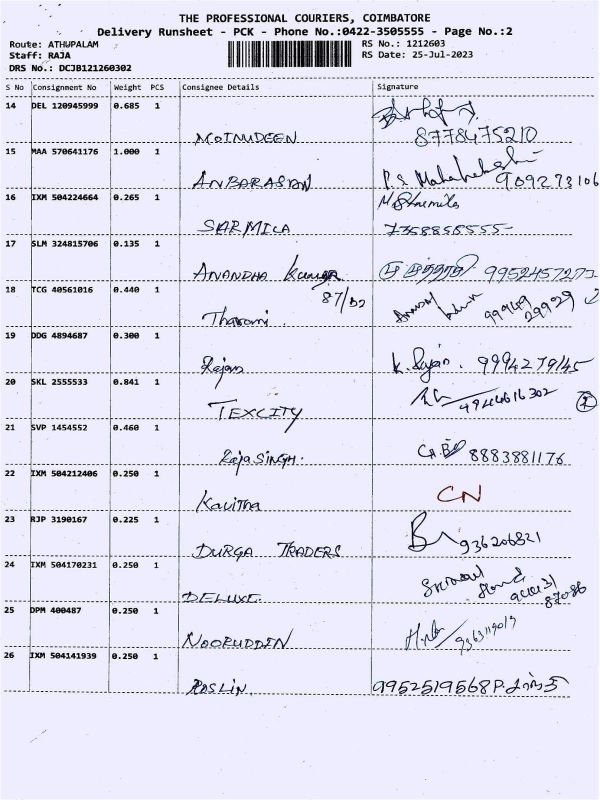 THE PROFESSIONAL COURIERS, COIMBATORE
Delivery Runsheet - PCK - Phone No.:0422-3505555 - Page No.:2
Route: ATHUPALAM RS No.: 1212603
Staff: RAJA RS Date: 25-Jul-2023
DRS No.: DCJB121260302
S No Consignment No Weight PCS Consignee Details Signature
14 DEL 120945999 0.685 1
MOINUDEEN 8778475210
15 MAA 570641176 1.000 1
ANBARASAN P.S Mahalakshmi 909273106
16 IXM 504224664 0.265 1
SARMILA 7358858555
17 SLM 324815706 0.135 1
ANANDHA Kumar 9952457273
18 TCG 40561016 0.440 1 87/B2
Tharani. 99949 29929
19 DDG 4894687 0.300 1
Rajan K. Rajan. 9994279145
20 SKL 2555533 0.841 1
TEXCITY 9944616302
21 SVP 1454552 0.460 1
Raja SINGH. 8883881176
22 IXM 504212406 0.250 1
Kavitha CN
23 RJP 3190167 0.225 1
DURGA TRADERS 936206821
24 IXM 504170231 0.250 1
DELUXE.
25 DPM 400487 0.250 1
NOORUDDEN 9363119019
26 IXM 504141939 0.250 1
ROSLIN. 9952519568